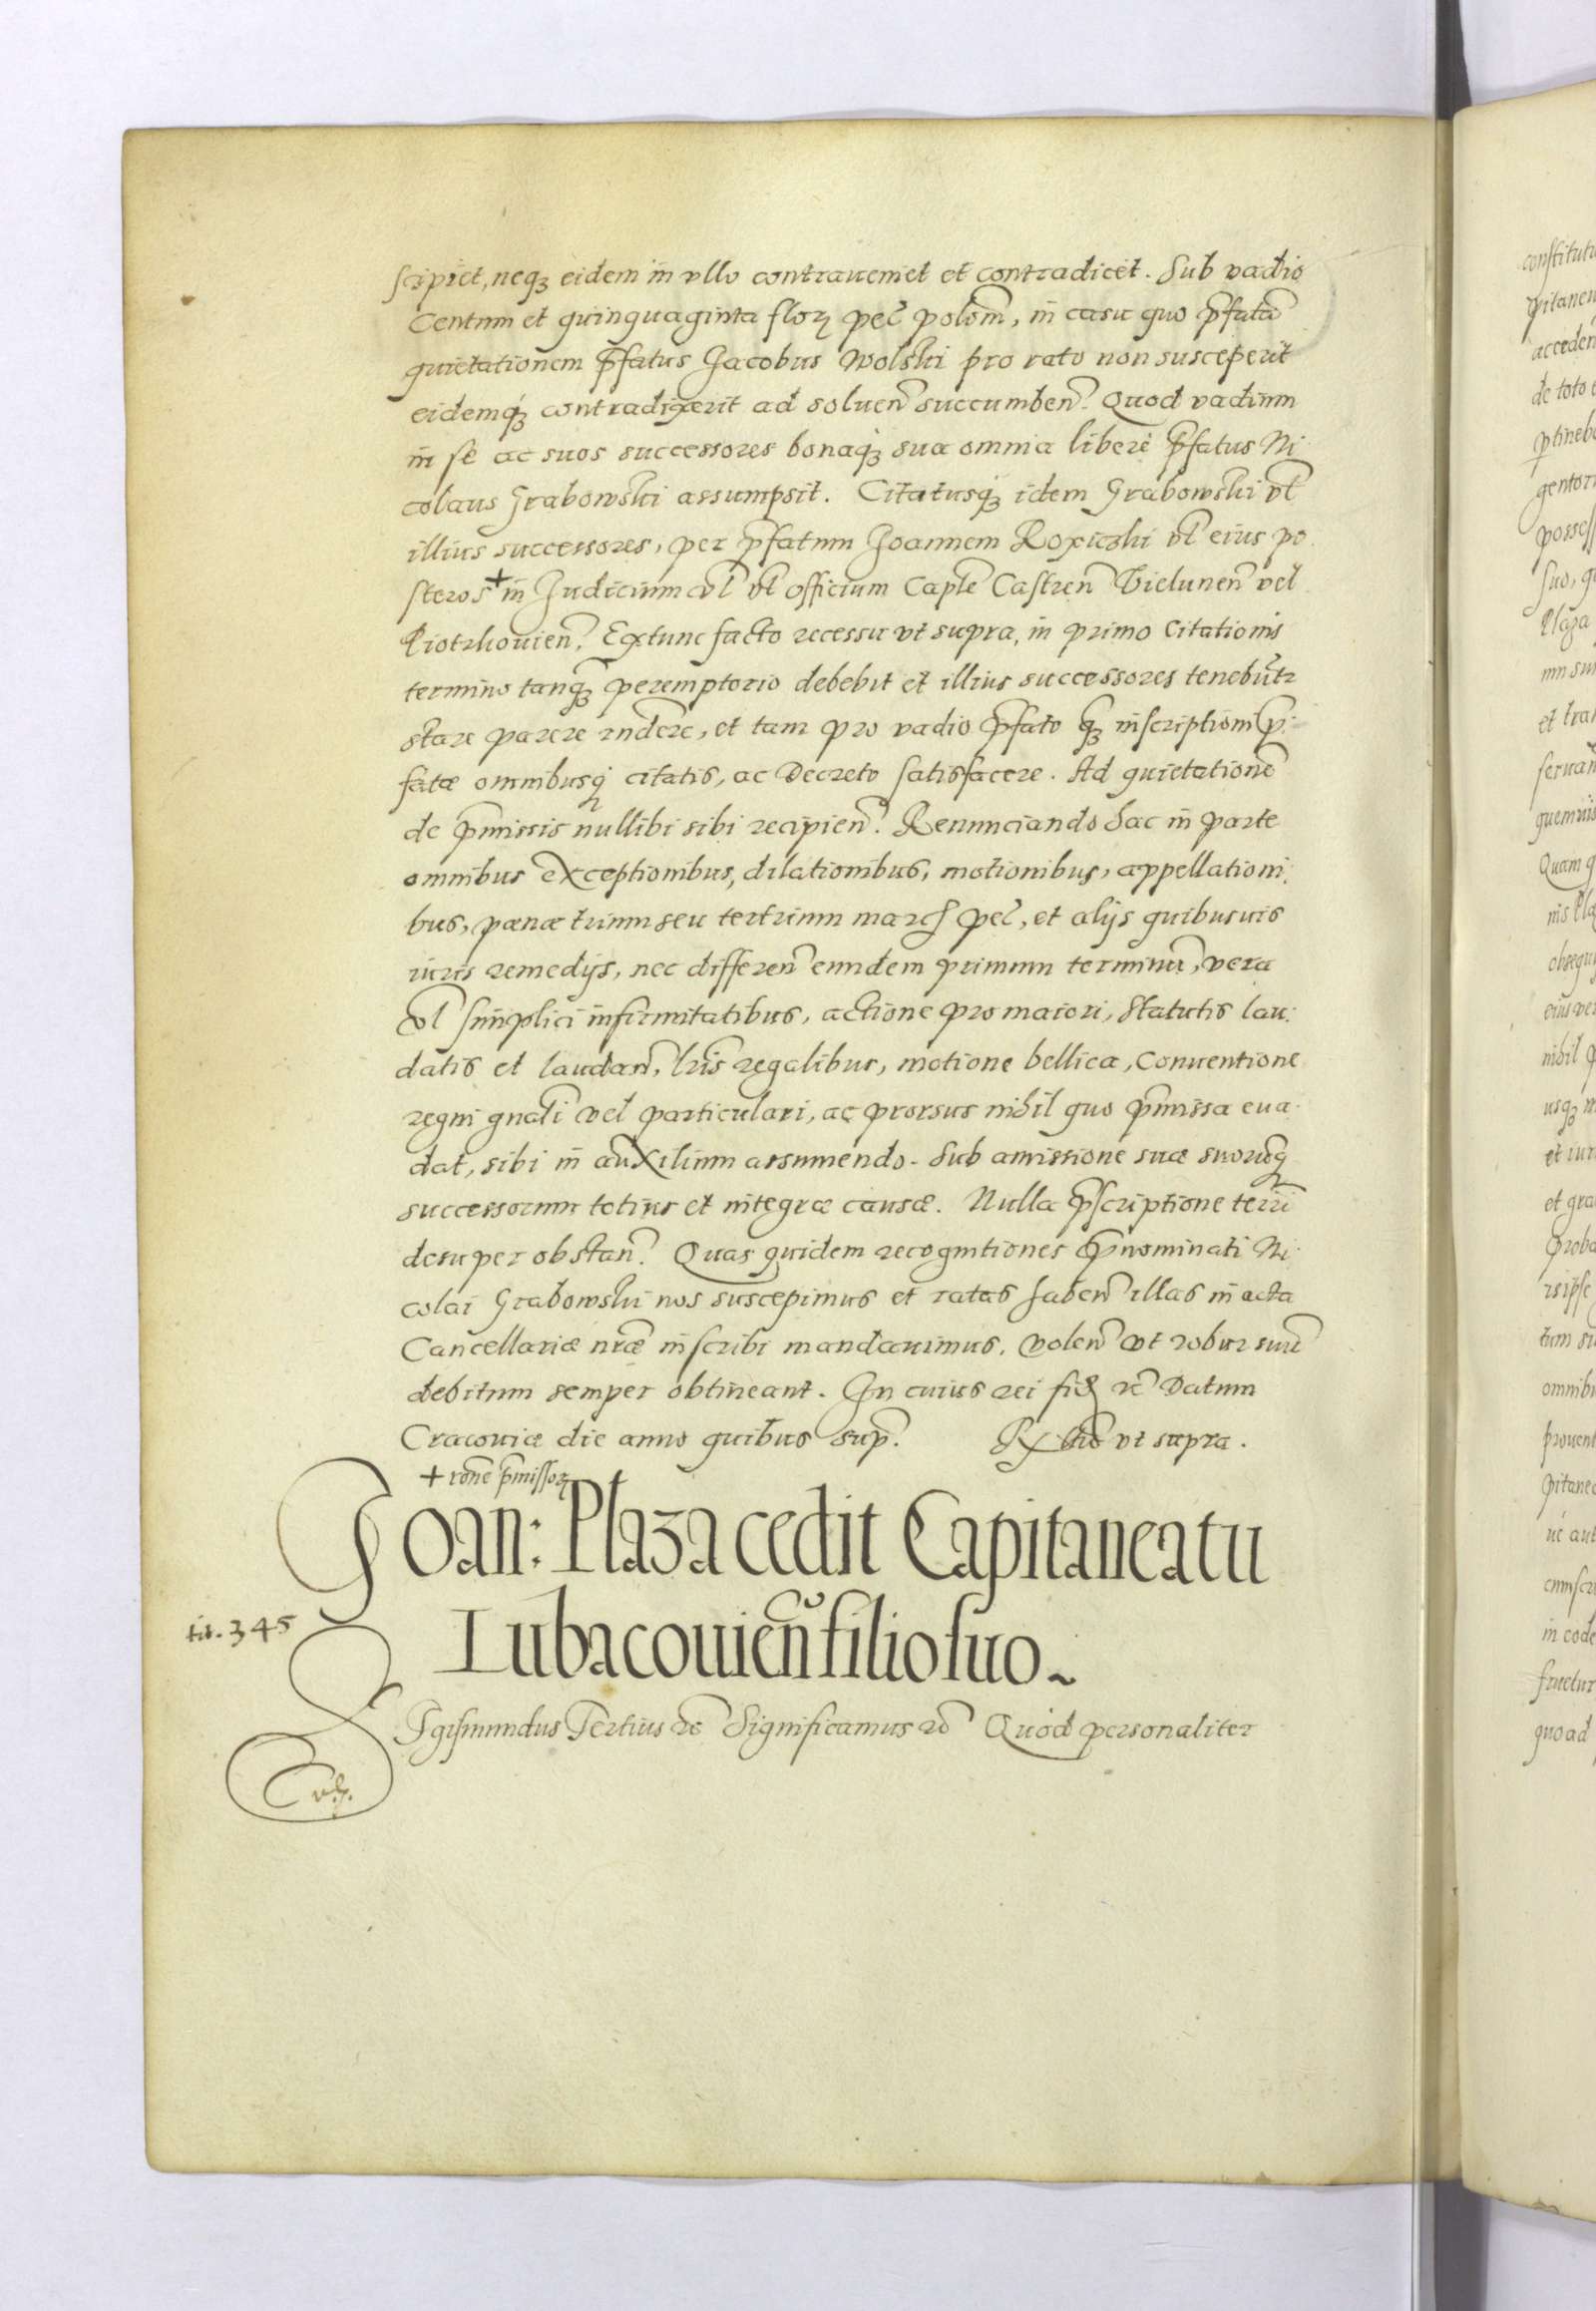 scipiet, neq₃ eidem in vllo contraueniet et contradicet. Sub vadio
Centum et quinquaginta flor₂ pec̃ polon̄, in casu quo p̃fatã
quietationem p̃fatus Jacobus Wolski pro rato non susceperit
eidemq́₃ contradixerit ad soluen̄ succumben̄. Quod vadium
in se ac suos successores bonaq́₃ sua omnia liberè p̃fatus Ni
colaus Grabowski assumpsit. Citatusq́₃ idem Grabowski vl̃
illius successores, per p̃fatum Joannem Roxiczki vl̃ eius po
steros + in Judicium vl̃ vl̃ officium Capłe Castren̄ Vielunen̄ vel
Piotrkouien̄. Extunc facto recessu vt supra, in primo Citationis
termino tanq₃ peremptorio debebit et illius successores tenebūtr
stare parere rndere, et tam pro vadio p̃fato q₃ inscriptioni p̃-
fatæ omnibusq́ citatis, ac Decreto satisfacere. Ad quietationē
de p̃missis nullibi sibi recipien̄. Renunciando hac in parte
omnibus exceptionibus, dilationibus, motionibus, appellationi:
bus, pænæ trium seu tertrium march pec̃, et alijs quibusuis
iuris remedijs, nec differen̄ eundem primum terminū, vera
vl̃ simplici infirmitatibus, actione pro maiori, Statutis lau:
datis et laudan̄, lr̃is regalibus, motione bellica, Conuentione
regni gnali vel particulari, ac prorsus nihil quo p̃missa eua-
dat, sibi in auxilium assumendo. Sub amissione suæ suorūq
successorum totius et integræ causæ. Nulla p̃scriptione terrī
desuper obstan̄. Quas quidem recognitiones p̃nominati Ni
colai Grabowski nos suscepimus et ratas haben̄ illas in acta
Cancellariæ nr̃æ inscribi mandauimus, volen̄ vt robur suū
debitum semper obtineant. In cuius rei fid₂ rc̃ Datum
Cracouiæ die anno quibus sup̃. Rx̃ltio vt supra.
+ rõne p̃missor₂
Joan: Plaza cedit Capitaneatu
Lubacouien̄ filio suo~
tit. 345
Sigismundus Tertius rc̃ Significamus rc̃ Quòd personaliter